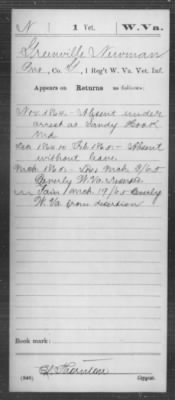 N 1 Vet. W. Va.
Greenville Newman
Co. G, 1 Reg't W. Va. Vet. Inf.
Appears on Returns as follows:
Nov. 1864 - Absent under
arrest at Sandy Hook
Md
Dec 1864 to Feb 1865 - Absent
without leave
Mch 1865 - Mch 9/65
Beverly W. Va.
Gain Mch 19/65 Beverly
W. Va from desertion
Book mark:
Thornton
(546) Copyist.